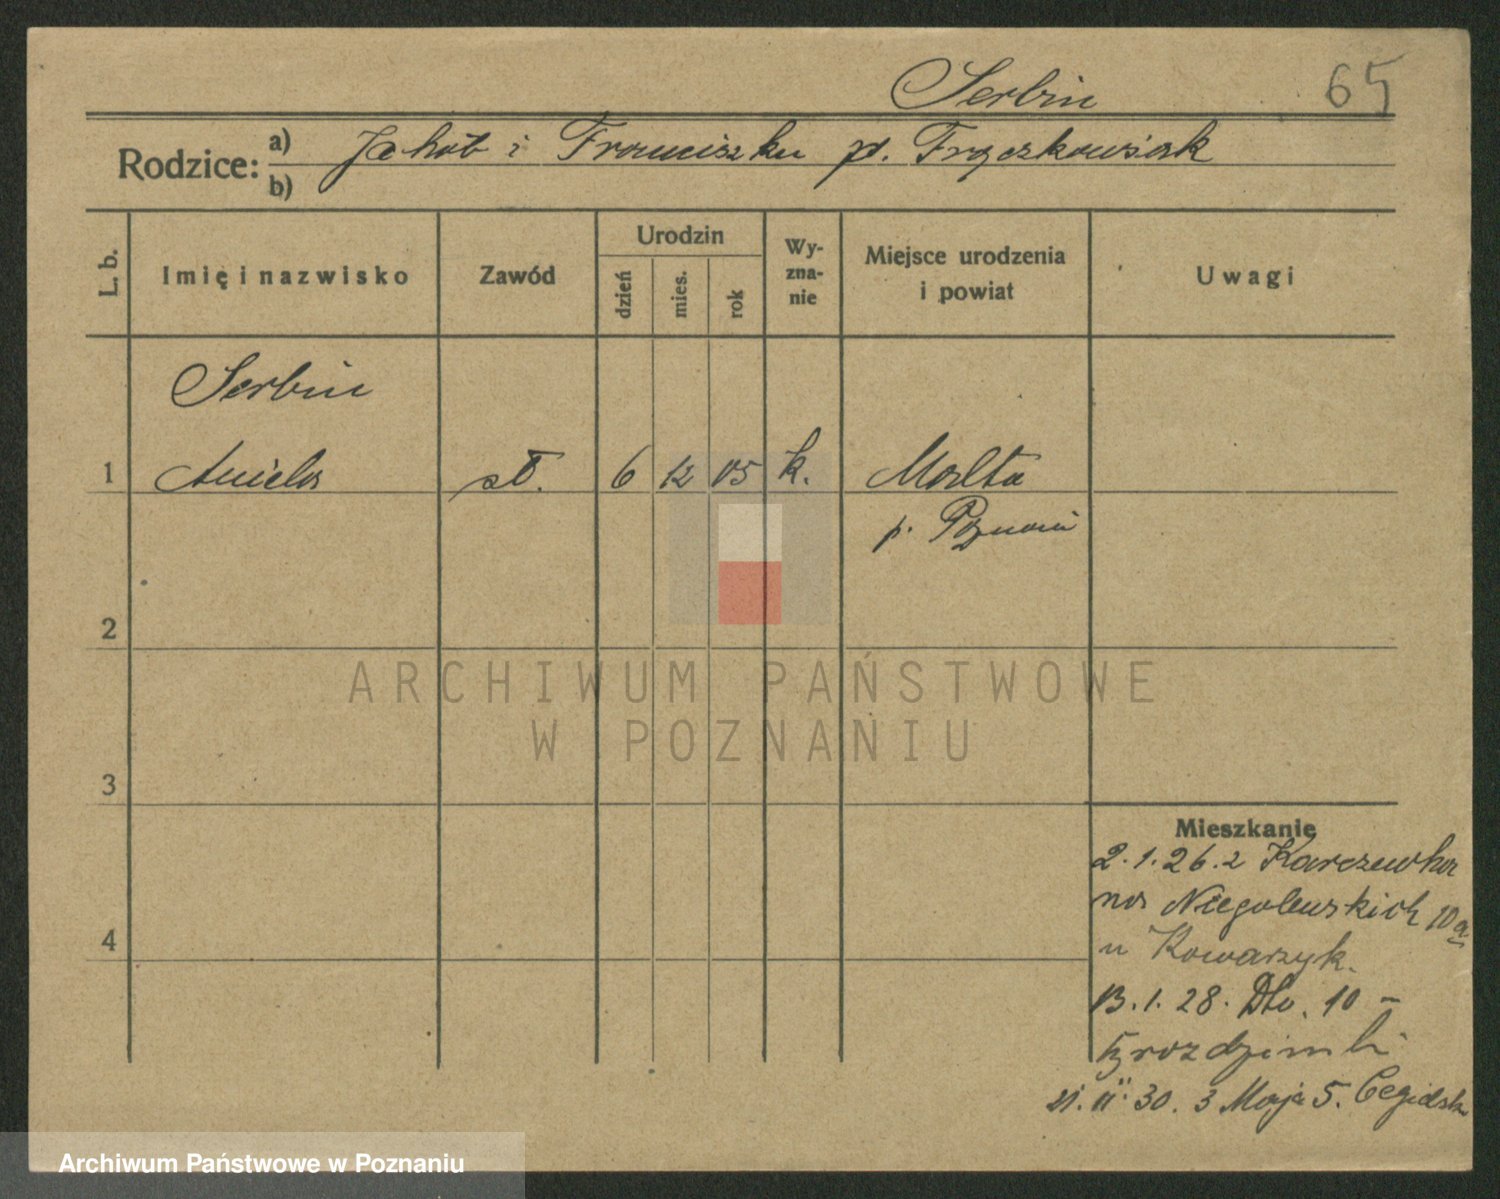 Serbin 65
Rodzice: a) Jakob i Franciszka pd. Frąckowiak
b)
L. b. Imię i nazwisko Zawód Urodzin dzień mies. rok Wyznanie Miejsce urodzenia i powiat Uwagi
Serbin
1 Aniela sł. 6 12 05 k. Malta
p. Poznań
2
3
Mieszkanie
2. 1. 26. z Karczewka
na Niegolewskich 10a
4
u Kowarzyk.
13. 1. 28. 10 –
21. 11. 30. 3 Maja 5.
ARCHIWUM PAŃSTWOWE
W POZNANIU
Archiwum Państwowe w Poznaniu